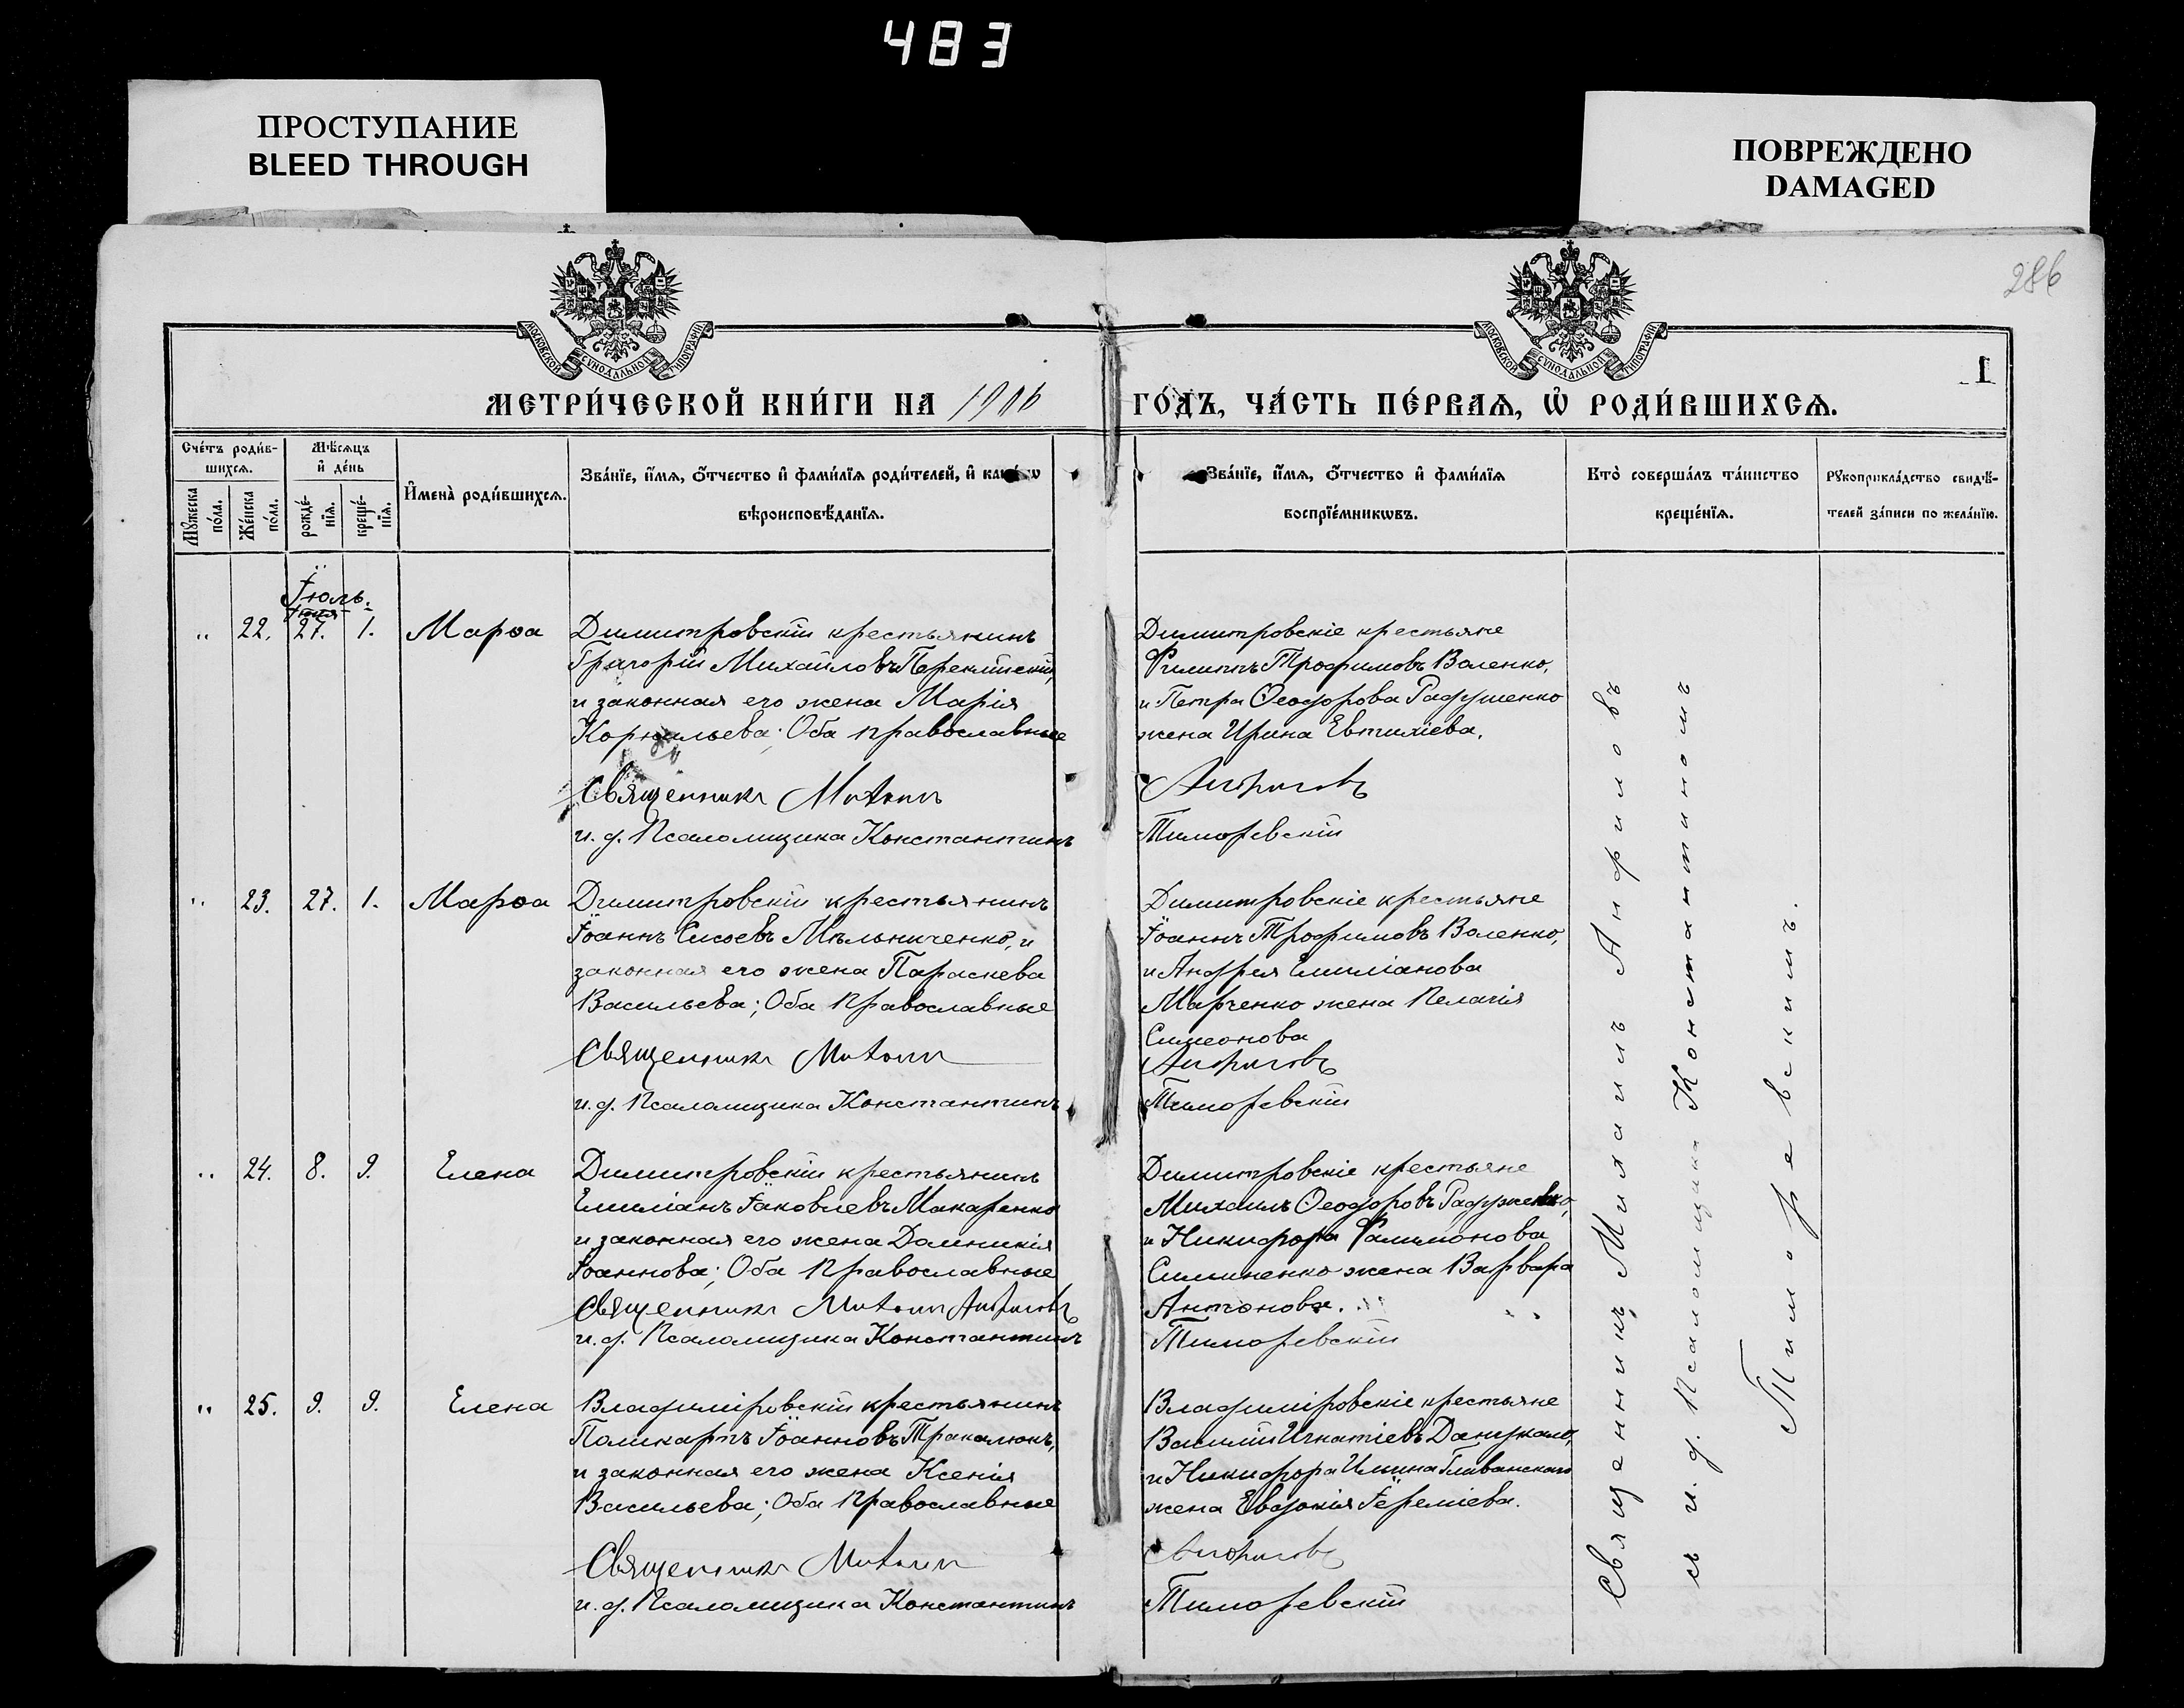 483
ПРОСТУПАНИЕ
BLEED THROUGH
ПОВРЕЖДЕНО
DAMAGED
286
МОСКОВСКОЙ СѴНОДАЛЬНОЙ ТИПОГРАФІИ
МОСКОВСКОЙ СѴНОДАЛЬНОЙ ТИПОГРАФІИ
1
МЕТРИ́ЧЕСКОЙ КНИ́ГИ НА 1906 ГО́ДЪ, ЧА́СТЬ ПЕ́РВАѦ, Ѡ҆ РОДИ́ВШИХСѦ.
Сче́тъ роди́в-
шихсѧ.
Мꙋ́жеска по́ла.
Же́нска по́ла.
Мѣ́сѧцъ
и҆ де́нь
рожде́-
нїѧ.
креще́-
нїѧ.
И҆мена̀ роди́вшихсѧ.
Зва́нїе, и҆́мѧ, ѻ҆́тчество и҆ фами́лїѧ роди́телей, и҆
вѣроисповѣ́данїѧ.
Зва́нїе, и҆́мѧ, ѻ҆́тчество и҆ фами́лїѧ
воспрїе́мникѡвъ.
Кто̀ соверша́лъ та́инство
креще́нїѧ.
Рꙋкоприкла́дство свидѣ́-
телей за́писи по жела́нїю.
Іюль.
„ 22. 27. 1. Марѳа
Димитровскій крестьянинъ
Григорій Михайловъ
и законная его жена Марія
Корнильева; Оба православные
Священникъ Михаилъ
и. д. Псаломщика Константинъ
Димитровскіе крестьяне
Филиппъ Трофимовъ Воленко,
и Петра Ѳеодорова Радушенко
жена Ирина Евтихіева.
Анфиловъ
Тиморевскій
„ 23. 27. 1. Марѳа
Димитровскій крестьянинъ
Іоаннъ Сисоевъ Мѣльниченко, и
законная его жена Параскева
Васильева; Оба Православные
Священникъ Михаилъ
и. д. Псаломщика Константинъ
Димитровскіе крестьяне
Іоаннъ Трофимовъ Воленко,
и Андрея Емиліанова
Марченко жена Пелагія
Симеонова
Анфиловъ
Тиморевскій
„ 24. 8. 9. Елена
Димитровскій крестьянинъ
Емиліанъ Іаковлевъ Макаренко
и законная его жена Домникія
Іоаннова; Оба Православные
Священникъ Михаилъ Анфиловъ
и. д. Псаломщика Константинъ
Димитровскіе крестьяне
Михаилъ Ѳеодоровъ
и Никифора Филимонова
Симиненко жена Варвара
Антонова.
Тиморевскій
„ 25. 9. 9. Елена
Владимі́ровскій крестьянинъ
Поликарпъ Іоанновъ Тракалюкъ,
и законная его жена Ксенія
Васильева; Оба Православные
Священникъ Михаилъ
и. д. Псаломщика Константинъ
Владиміровскіе крестьяне
Василій Игнатіевъ
и Никифора Ильина Гливанскаго
жена Евдокія Іереміева.
Анфиловъ
Тиморевскій
Священникъ Михаилъ Анфиловъ
съ и. д. Псаломщика Константиномъ
Тиморевскимъ.